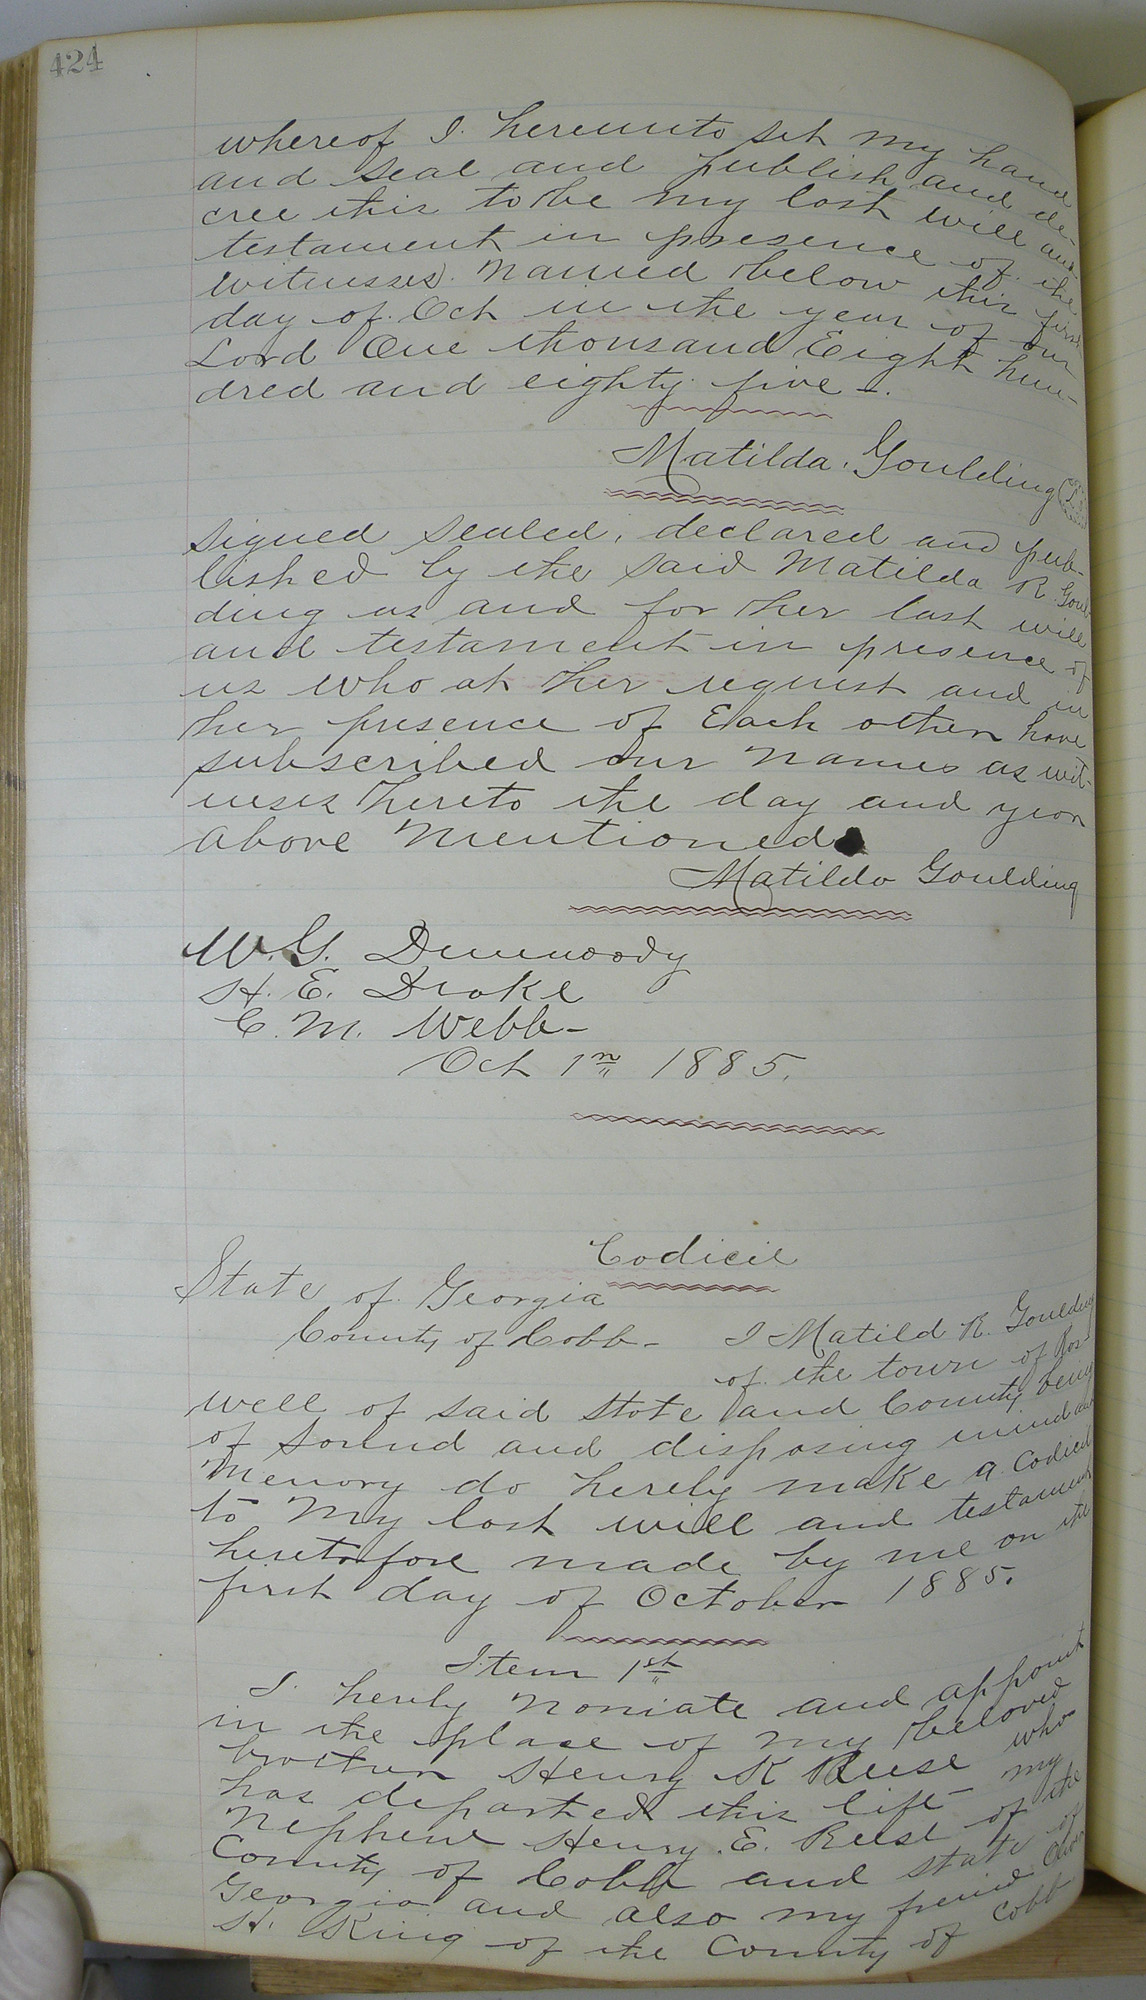 424
whereof I. hereunto set my hand
and seal and publish and de-
cree this to be my last will and
testament in presence of the
witnesses named below this first
day of Oct in the year of our
Lord One thousand Eight hun-
dred and eighty five -.
Matilda. Goulding
signed sealed, declared and pub-
lished by the said Matilda R Goul-
ding as and for her last will
and testament in presence of
us who at her request and in
her presence of Each other have
subscribed our names as wit-
nesses hereto the day and year
above mentioned
Matilda Goulding
W. G. Dunwoody
H. E. Drake
C. M. Webb-
Oct 1 1885.
Codicil
State of Georgia
County of Cobb- I Matild R. Goulding
of the town of Ros-
well of said State and County being
of sound and disposing mind and
memory do hereby make a Codicil
to my last will and testament
heretofore made by me on the
first day of October 1885.
Item 1st
I hereby noniate and appoint
in the place of my beloved
brother Henry K Reese who
has departed this life my
Nephew Henry. E. Reese of the
County of Cobb and state of
Georgia and also my friend
H. King of the County of Cobb